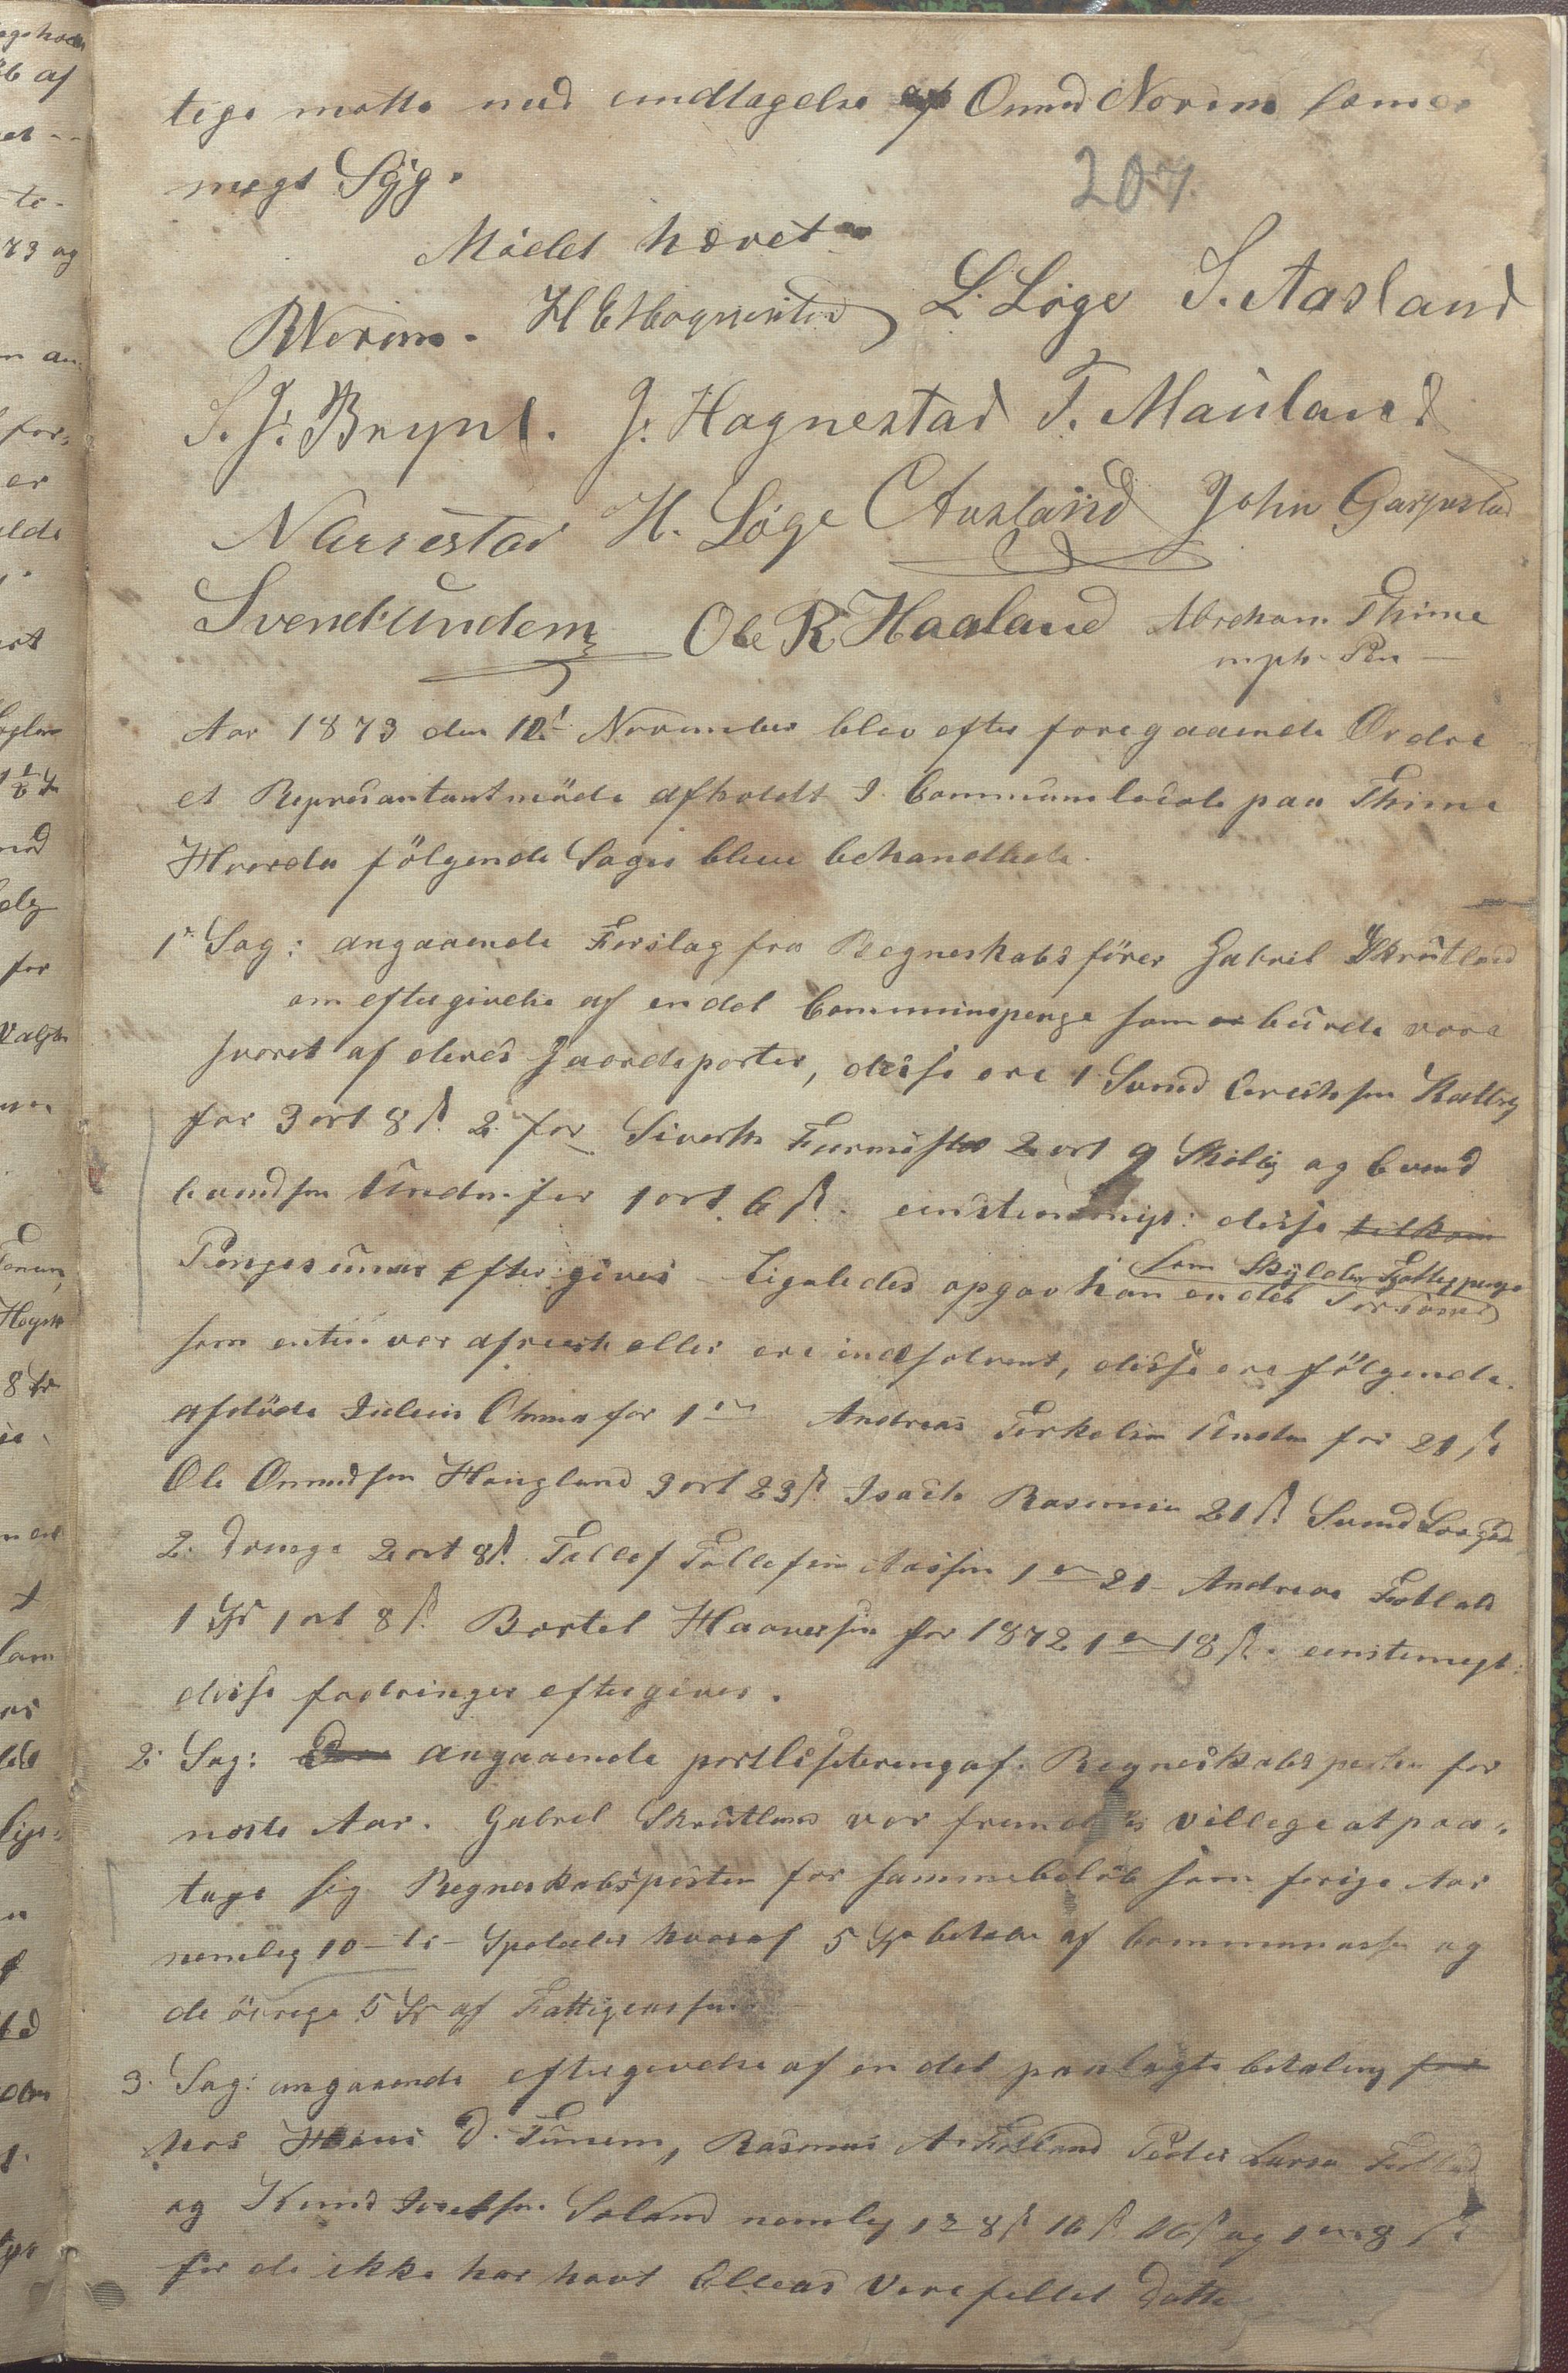 tige møtte med undtagelse af Omund Norem som er
megt Syg.
207.
Mödet hævet
R Norem. H E Hognestad L. Löge S. Aasland
S. J. Brynl. J. Hagnestad T. Mauland
N Aarrestad H. Löge C Auklând John Garpestad
Svend Undem Ole R Haaland Abreham Thime
mph. Pen
Aar 1873 den 12t November blev efter foregaaende Ordre
et Represantantmöde afholdt I Communelocale paa Thime
Hvorda fölgende Sager bleve behandlede.
1. Sag: angaaende Forslag fra Regneskabsförer Gabril Skrutland
om eftergivelse af en del Communepenge som er burde vore
svoret af deres Jaordeparter, disse ere 1 Svend
for 3 ort 8 s. 2. for Siverts 2 ort 9 Skilig og Evend
Evendsen Undem for 1 ort 6 s. enstemmigt: disse
Pengesummer eftergives Ligeledes opgav han en del Personer
som Skylder Fattigpenge
som enten var afreist eller ere indsolvent, disse ere fölgende.
afdöde for 1 Andreas Torkelsen Undem for 21 s
Ole Omundsen Haugland 3 ort 23 s. Isach Rasmusen 21 s. Svend
2. 2 ort 8 s. Tollef Tollefsen 1 21 Andreas
1 Spd 1 ort 8 s. Bertel for 1872 1 18 s. enstemegt:
disse fodringer eftergives.
2. Sag: angaaende portlisitering af Regneskabsposten for
neste Aar. Gabrel Skrutland var fremdeles villege at paa-
tage sig Regneskabsposten for samme belöb som forige Aar
nemlig 10 - ti - Spdaler hvoraf 5 Spd betales af Communcassen og
de övrege 5 Spd af Fattigcassen
3. Sag: angaaende eftergivelse af en del paalagte betaling for
hos Hans D. Tunem, Rasmus A. Peder Larsen
og Knud Soland nemlig 8 s 16 s 16 s og 1 8 s
for de ikke har havt Elleas Verefeldet Datter